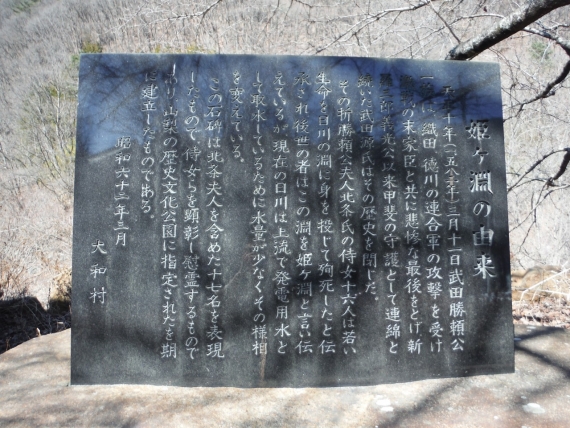 姫ヶ淵の由来
天正十年(一五八二年)三月十一日武田勝頼公
一行は、織田、徳川の連合軍の攻撃を受け
激戦の末家臣と共に悲惨な最後をとげ新
羅三郎義光公以来甲斐の守護として連綿と
続いた武田源氏はその歴史を閉じた。
その折勝頼公夫人北条氏の侍女十六人は若い
生命を日川の淵に身を投じて殉死したと伝
承され後世の者はこの淵を姫ヶ淵と言い伝
えているが現在の日川は上流で発電用水と
して取水しているために水量が少なくその様相
を変えている。
この石碑は北条夫人を含めた十七名を表現
したもので侍女らを顕彰し慰霊するもので
あり、山梨の歴史文化公園に指定されたを期
に建立したものである。
昭和六十三年三月
大和村